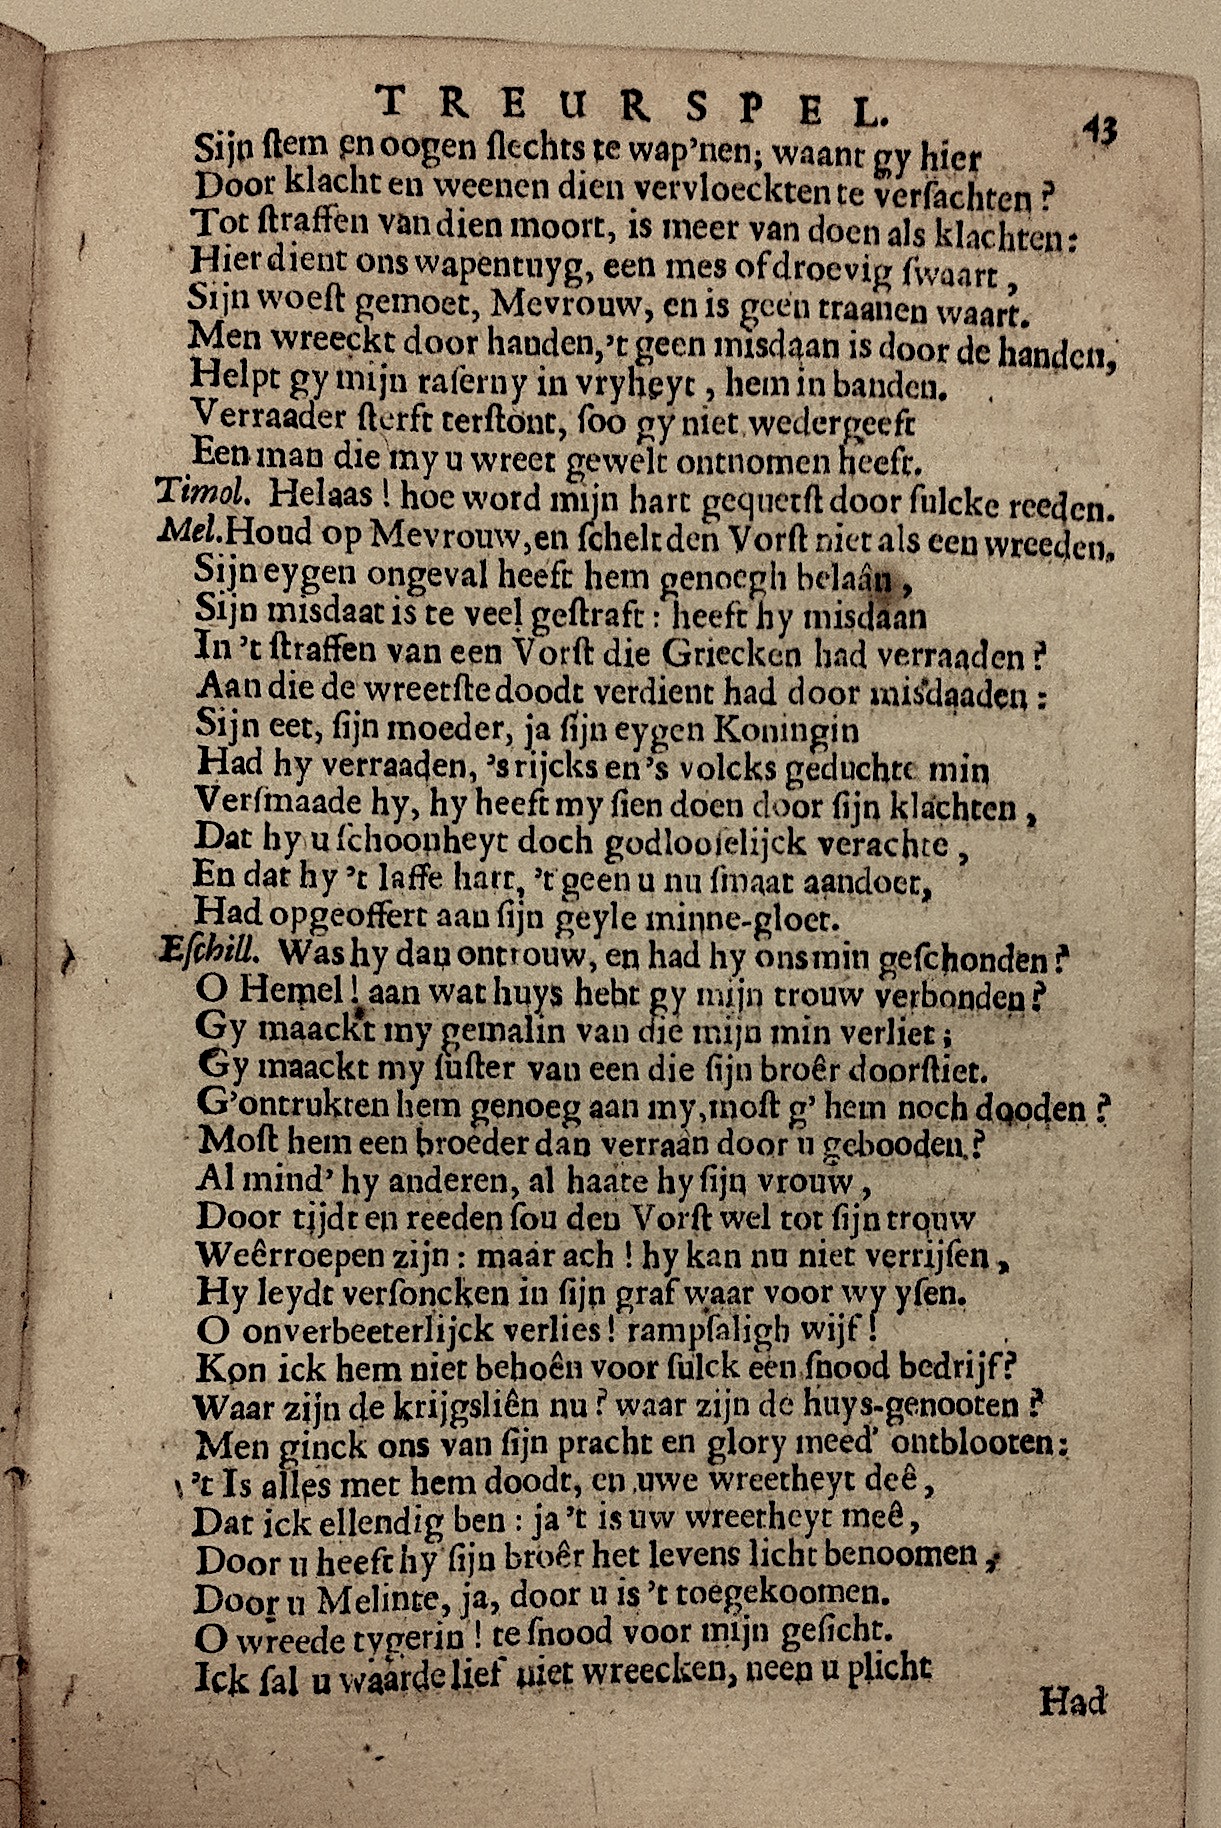 TREURSPEL. 43
Sijn ſtem en oogen ſlechts te wap'nen; waant gy hier
Door klacht en weenen dien vervloeckten te verſachten?
Tot ſtraffen van dien moort, is meer van doen als klachten:
Hier dient ons wapentuyg, een mes of droevig ſwaart,
Sijn woeſt gemoet, Mevrouw, en is geen traanen waart.
Men wreeckt door handen,'t geen misdaan is door de handen,
Helpt gy mijn raſerny in vryheyt, hem in banden.
Verraader ſterft terſtont, ſoo gy niet wedergeeft
Een man die my u wreet gewelt ontnomen heeft.
Timol. Helaas! hoe word mijn hart gequetſt door ſulcke reeden.
Mel. Houd op Mevrouw, en ſchelt den Vorſt niet als een wreeden,
Sijn eygen ongeval heeft hem genoegh belaân,
Sijn misdaat is te veel geſtraft: heeft hy misdaan
In 't ſtraffen van een Vorſt die Griecken had verraaden?
Aan die de wreetſte doodt verdient had door misdaaden:
Sijn eet, ſijn moeder, ja ſijn eygen Koningin
Had hy verraaden, 's rijcks en 's volcks geduchte min
Verſmaade hy, hy heeft my ſien doen door ſijn klachten,
Dat hy u ſchoonheyt doch godlooſelijck verachte,
En dat hy 't laffe hart, 't geen u nu ſmaat aandoet,
Had opgeoffert aan ſijn geyle minne-gloet.
Eſchill. Was hy dan ontrouw, en had hy ons min geſchonden?
O Hemel! aan wat huys hebt gy mijn trouw verbonden?
Gy maackt my gemalin van die mijn min verliet;
Gy maackt my ſuſter van een die ſijn broêr doorſtiet.
G'ontrukten hem genoeg aan my, moſt g' hem noch dooden?
Moſt hem een broeder dan verraân door u gebooden?
Al mind' hy anderen, al haate hy ſijn vrouw,
Door tijdt en reeden ſou den Vorſt wel tot ſijn trouw
Weêrroepen zijn: maar ach! hy kan nu niet verrijſen,
Hy leydt verſoncken in ſijn graf waar voor wy yſen.
O onverbeeterlijck verlies! rampſaligh wijf!
Kon ick hem niet behoên voor ſulck een ſnood bedrijf?
Waar zijn de krijgsliên nu? waar zijn de huys-genooten?
Men ginck ons van ſijn pracht en glory meed' ontblooten:
't Is alles met hem doodt, en uwe wreetheyt deê,
Dat ick ellendig ben: ja 't is uw wreetheyt meê,
Door u heeft hy ſijn broêr het levens licht benoomen,
Door u Melinte, ja, door u is 't toegekoomen.
O wreede tygerin! te ſnood voor mijn geſicht.
Ick ſal u waarde lief niet wreecken, neen u plicht
Had